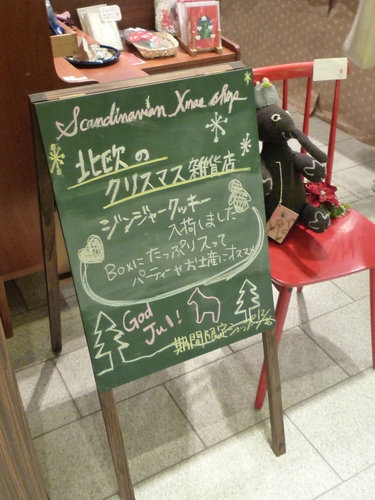 Scandinavian Xmas shop
北欧の
クリスマス雑貨店
ジンジャークッキー
入荷しました
Boxにたっぷり入って
パーティーやお土産にオススメ
God
Jul!
期間限定ショップ